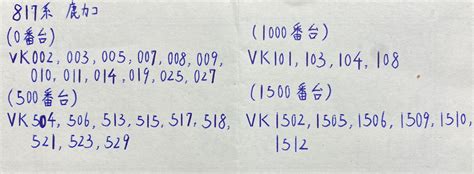 817系 鹿カコ
(0番台)
VK002, 003, 005, 007, 008, 009,
010, 011, 014, 019, 025, 027
(500番台)
VK504, 506, 513, 515, 517, 518,
521, 523, 529
(1000番台)
VK101, 103, 104, 108
(1500番台)
VK1502, 1505, 1506, 1509, 1510,
1512